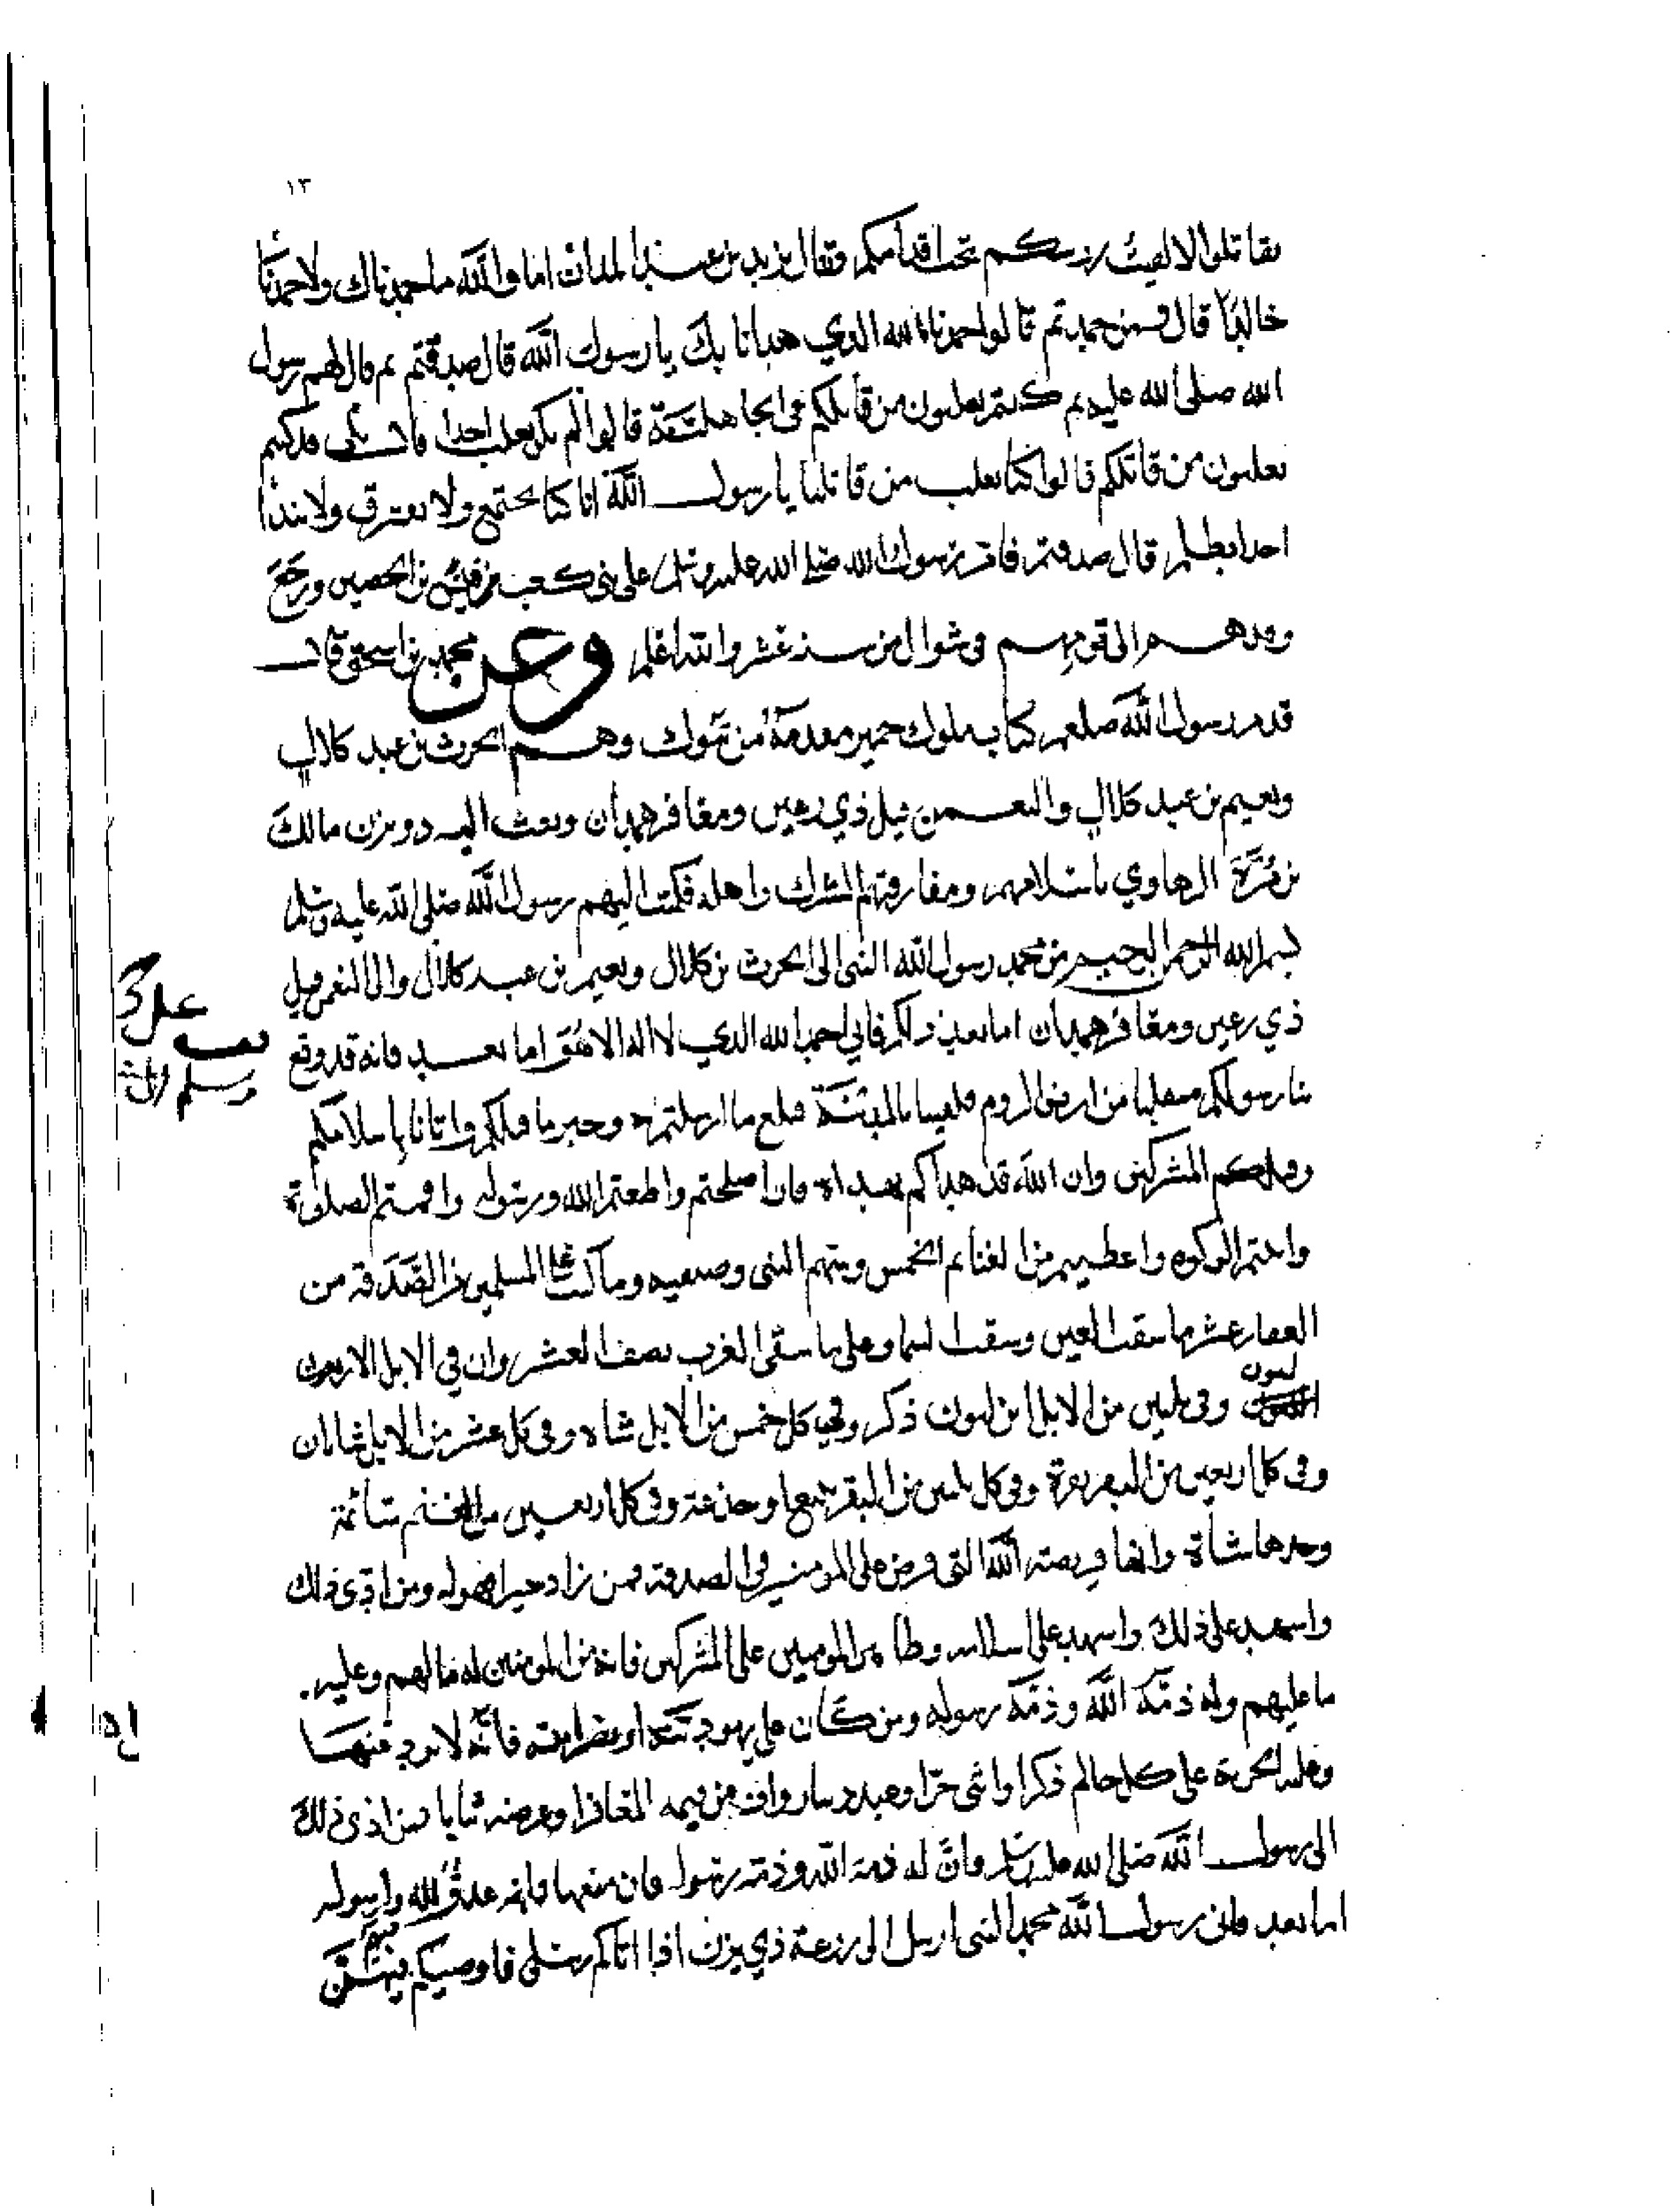 ١٣
تقاتلوا لالقيت روسكم تحت اقدامكم فقال يزيد بن عبد المدان اما والله ما حمدناك ولا حمدنا
خالدا قال فمن حمدتم قالوا حمدنا الله الذي هدانا بك يا رسول الله قال صدقتم ثم قال لهم رسول
الله صلى الله عليه بم كنتم تغلبون من قاتلكم في الجاهلية قالوا لم نكن نغلب احدا قال بلى قد كنتم
تغلبون من قاتلكم قالوا كنا نغلب من قاتلنا يا رسول الله انا كنا نجتمع ولا نفترق ولا نبدا
احدا بظلم قال صدقتم فامر رسول الله صلى الله عليه وسلم على بني كعب قيس بن الحصين ورجع
وفدهم الى قومهم في شوال من سنة عشر والله اعلم وعن محمد بن اسحق قال
قدم رسول الله صلعم كتاب ملوك حمير مقدمه من تبوك وهم الحرث بن عبد كلال
ونعيم بن عبد كلال والنعمن قيل ذي رعين ومعافر همدان وبعث اليه ذو يزن مالك
بن مرة الرهاوي باسلامهم ومفارقتهم الشرك واهله فكتب اليهم رسول الله صلى الله عليه وسلم
بسم الله الرحمن الرحيم من محمد رسول الله النبي الى الحرث بن كلال ونعيم بن عبد كلال والى النعمن قيل
ذي رعين ومعافر همدان اما بعد ذلكم فاني احمد الله الذي لا اله الا هو اما بعد فانه قد وقع
بنا رسولكم منقلبا من ارض الروم فلقينا بالمدينة فبلغ ما ارسلتم به وخبر ما قبلكم واتانا باسلامكم
وقتلكم المشركين وان الله قد هداكم بهداه فان اصلحتم واطعتم الله ورسوله واقمتم الصلوة
واتيتم الزكوه واعطيتم من الغنائم الخمس وسهم النبي وصفيه وما كتب على المسلمين من الصدقة من
العقار عشر ما سقت العين وسقت السما وعلى ما سقى الغرب نصف العشر وان في الابل الاربعين
لبون وفي ثلثين من الابل ابن لبون ذكر وفي كل خمس من الابل شاه وفي كل عشر من الابل شاتان
وفي كل اربعين من البقر بقرة وفي كل ثلثين من البقر تبيع او جذعة وفي كل اربعين من الغنم سائمة
وحدها شاة وانها فريضة الله التي فرض على المومنين في الصدقة فمن زاد خيرا فهو له ومن ادى ذلك
واشهد على ذلك واشهد على اسلامه وظاهر المومنين على المشركين فانه من المومنين له ما لهم وعليه
ما عليهم وله ذمة الله وذمة رسوله ومن كان على يهوديته او نصرانيته فانه لا يرد عنها
وعليه الجزية على كل حالم ذكر او انثى حر او عبد دينار واف من قيمة المعافر او عرضه ثيابا فمن ادى ذلك
الى رسول الله صلى الله عليه وسلم فان له ذمة الله وذمة رسوله فان منعها فانه عدو لله ولرسوله
اما بعد فان رسول الله محمد النبي ارسل الى زرعة ذي يزن اذا اتاكم رسلي فاوصيكم بهم